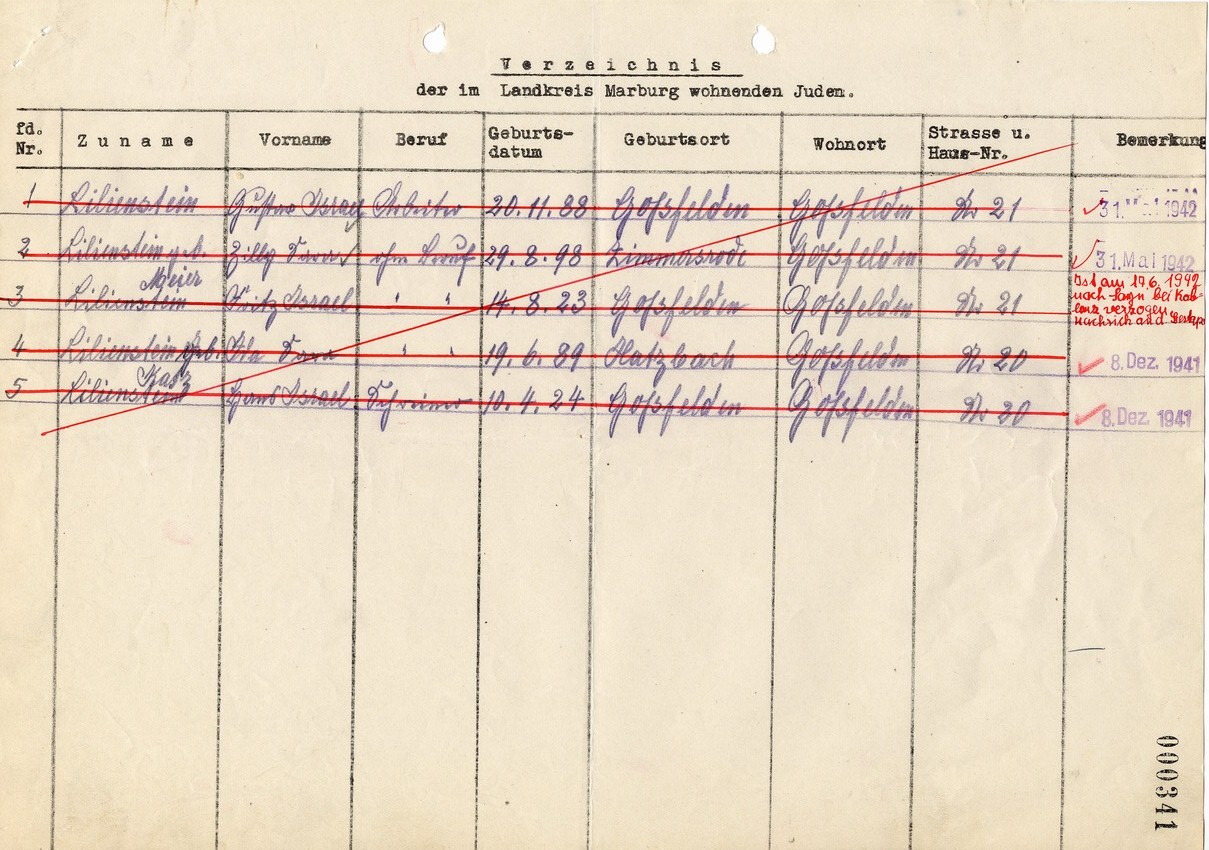 Verzeichnis
der im Landkreis Marburg wohnenden Juden.
fd. Nr. Zuname Vorname Beruf Geburts-datum Geburtsort Wohnort Strasse u. Haus-Nr. Bemerkung
1 Lilienstein Gustav Israel Arbeiter 20.11.88 Goßfelden Goßfelden Nr 21 31. Mai 1942
2 Lilienstein geb. Meier Zilly Sara ohne Beruf 29.8.98 Zimmersrode Goßfelden Nr 21 31. Mai 1942
3 Lilienstein Fritz Israel " " 14.8.23 Goßfelden Goßfelden Nr 21 Ist am 17.6.1942
nach Sayn bei Kob-
lenz verzogen
4 Lilienstein geb. Katz Sara " " 19.6.89 Hatzbach Goßfelden Nr 20 8. Dez. 1941
5 Lilienstein Hans Israel Schreiner 10.4.24 Goßfelden Goßfelden Nr 20 8. Dez. 1941
000341